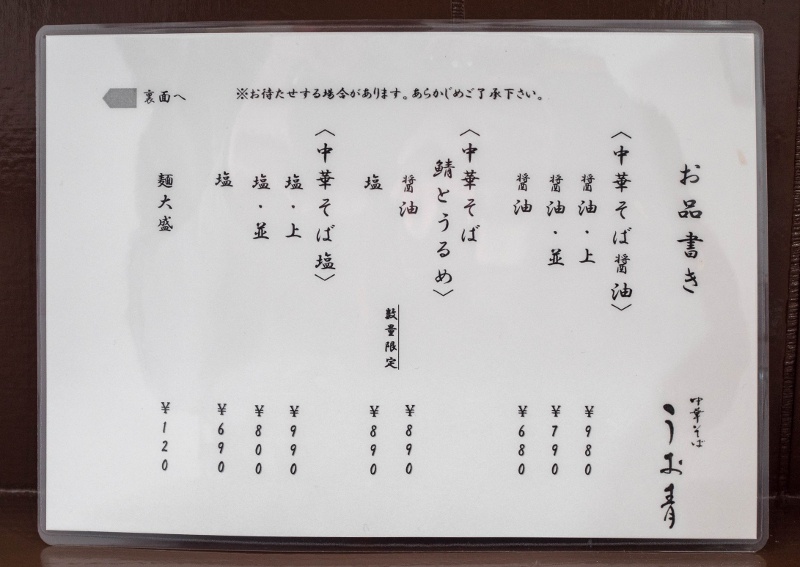 お品書き
中華そば
うお青
〈中華そば醤油〉
醤油・上 ¥980
醤油・並 ¥790
醤油 ¥680
〈中華そば
鯖とうるめ〉
醤油 ¥890
数量限定
塩 ¥890
〈中華そば塩〉
塩・上 ¥990
塩・並 ¥800
塩 ¥690
麺大盛 ¥120
※お待たせする場合があります。あらかじめご了承下さい。
裏面へ